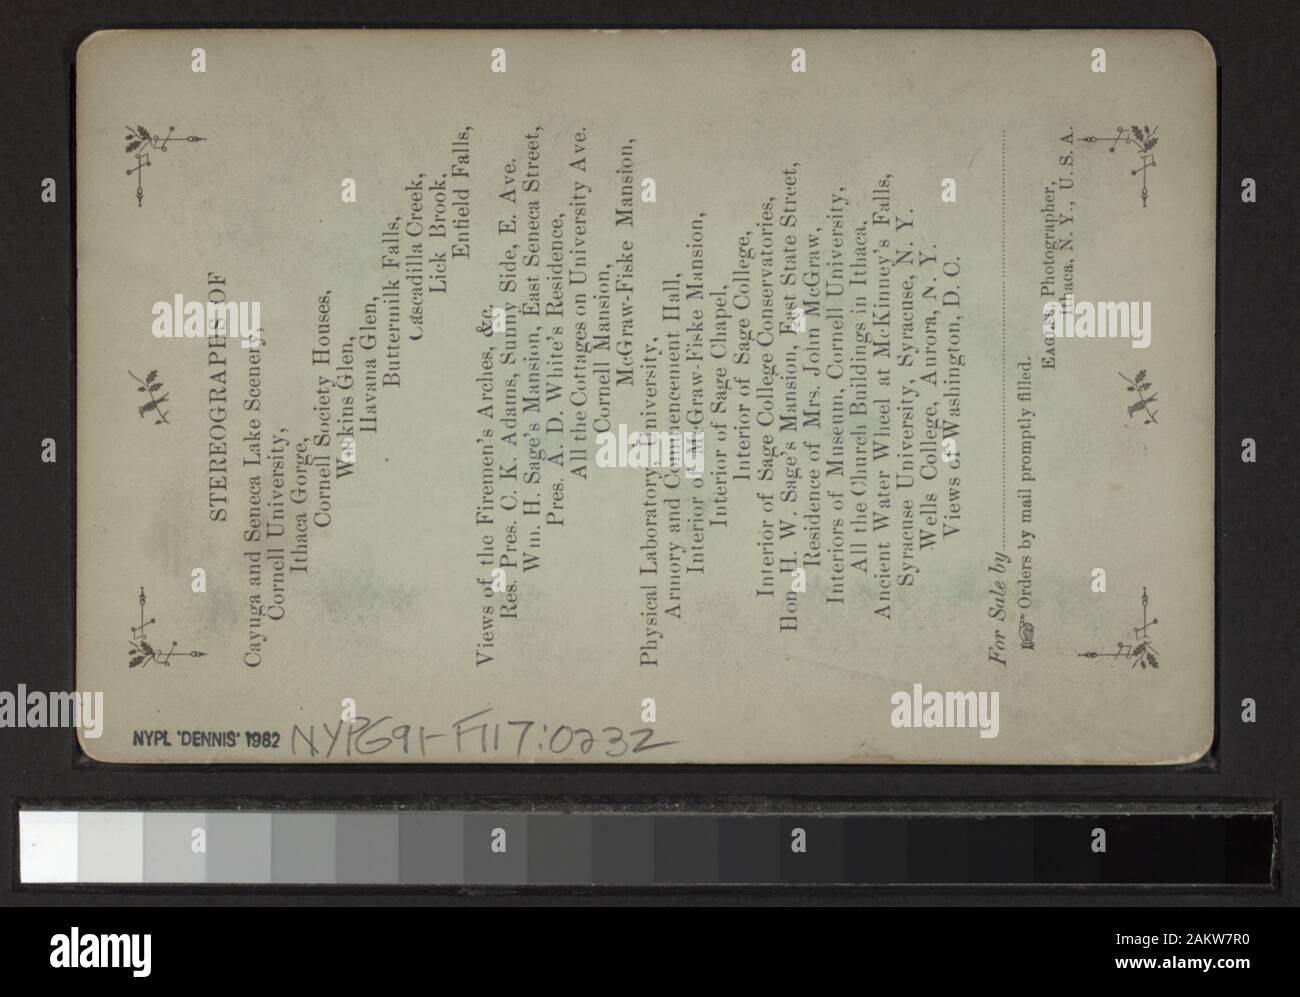 STEREOGRAPHS OF
Cayuga and Seneca Lake Scenery,
Cornell University,
Ithaca Gorge,
Cornell Society Houses,
Watkins Glen,
Havana Glen,
Buttermilk Falls,
Cascadilla Creek,
Lick Brook,
Enfield Falls,
Views of the Firemen's Arches, &c.
Res. Pres. C. K. Adams, Sunny Side, E. Ave.
Wm. H. Sage's Mansion, East Seneca Street,
Pres. A. D. White's Residence,
All the Cottages on University Ave.
Cornell Mansion,
McGraw-Fiske Mansion,
Physical Laboratory, University,
Armory and Commencement Hall,
Interior of McGraw-Fiske Mansion,
Interior of Sage Chapel,
Interior of Sage College,
Interior of Sage College Conservatories,
Hon. H. W. Sage's Mansion, East State Street,
Residence of Mrs. John McGraw,
Interiors of Museum, Cornell University,
All the Church Buildings in Ithaca,
Ancient Water Wheel at McKinney's Falls,
Syracuse University, Syracuse, N. Y.
Wells College, Aurora, N. Y.
Views of Washington, D. C.
For Sale by
Orders by mail promptly filled.
Photographer,
Ithaca, N. Y., U. S. A.
NYPL 'DENNIS' 1982 NYPG91-F117:0232
alamy
alamy
alamy
Image ID: 2AKW7R0
www.alamy.com